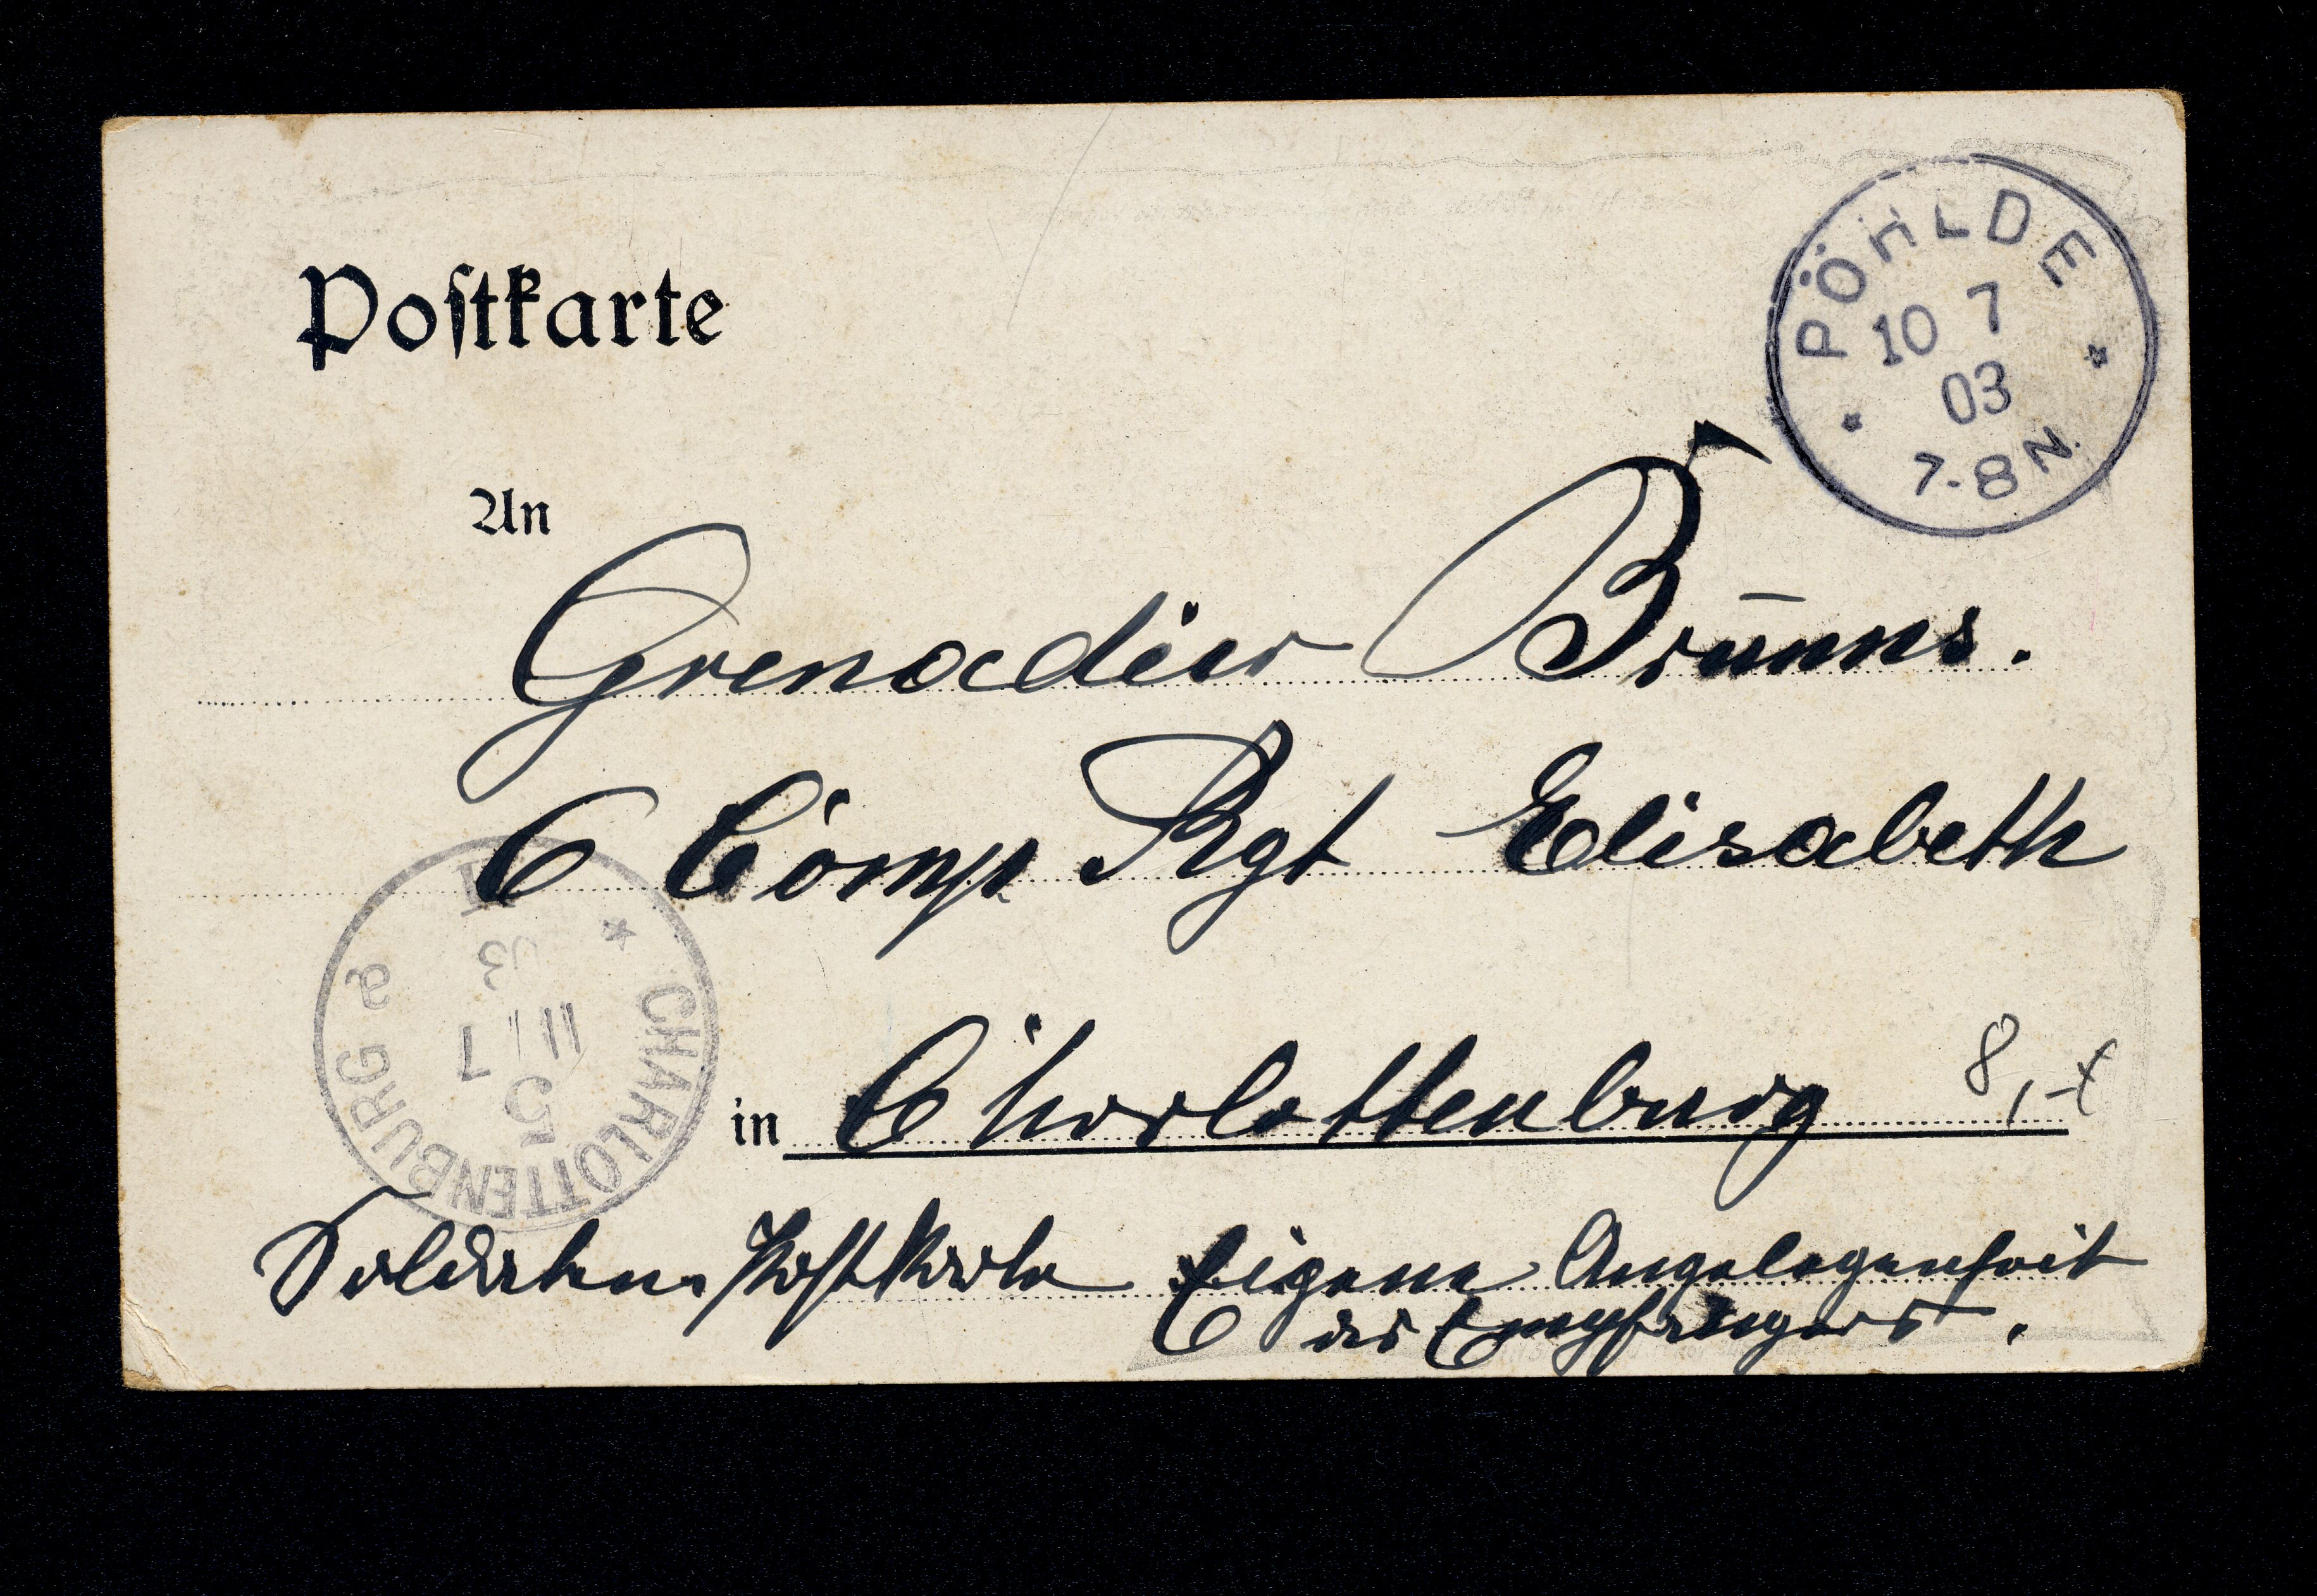 Postkarte
PÖHLDE
10 7
03
7-8 N.
An
Grenadier Brunns.
6 Comp Rgt Elisabeth
in Charlottenburg
8,-
CHARLOTTENBURG a
5
11 7
03
Soldaten Postkarte Eigene Angelegenheit
des Empfängers.